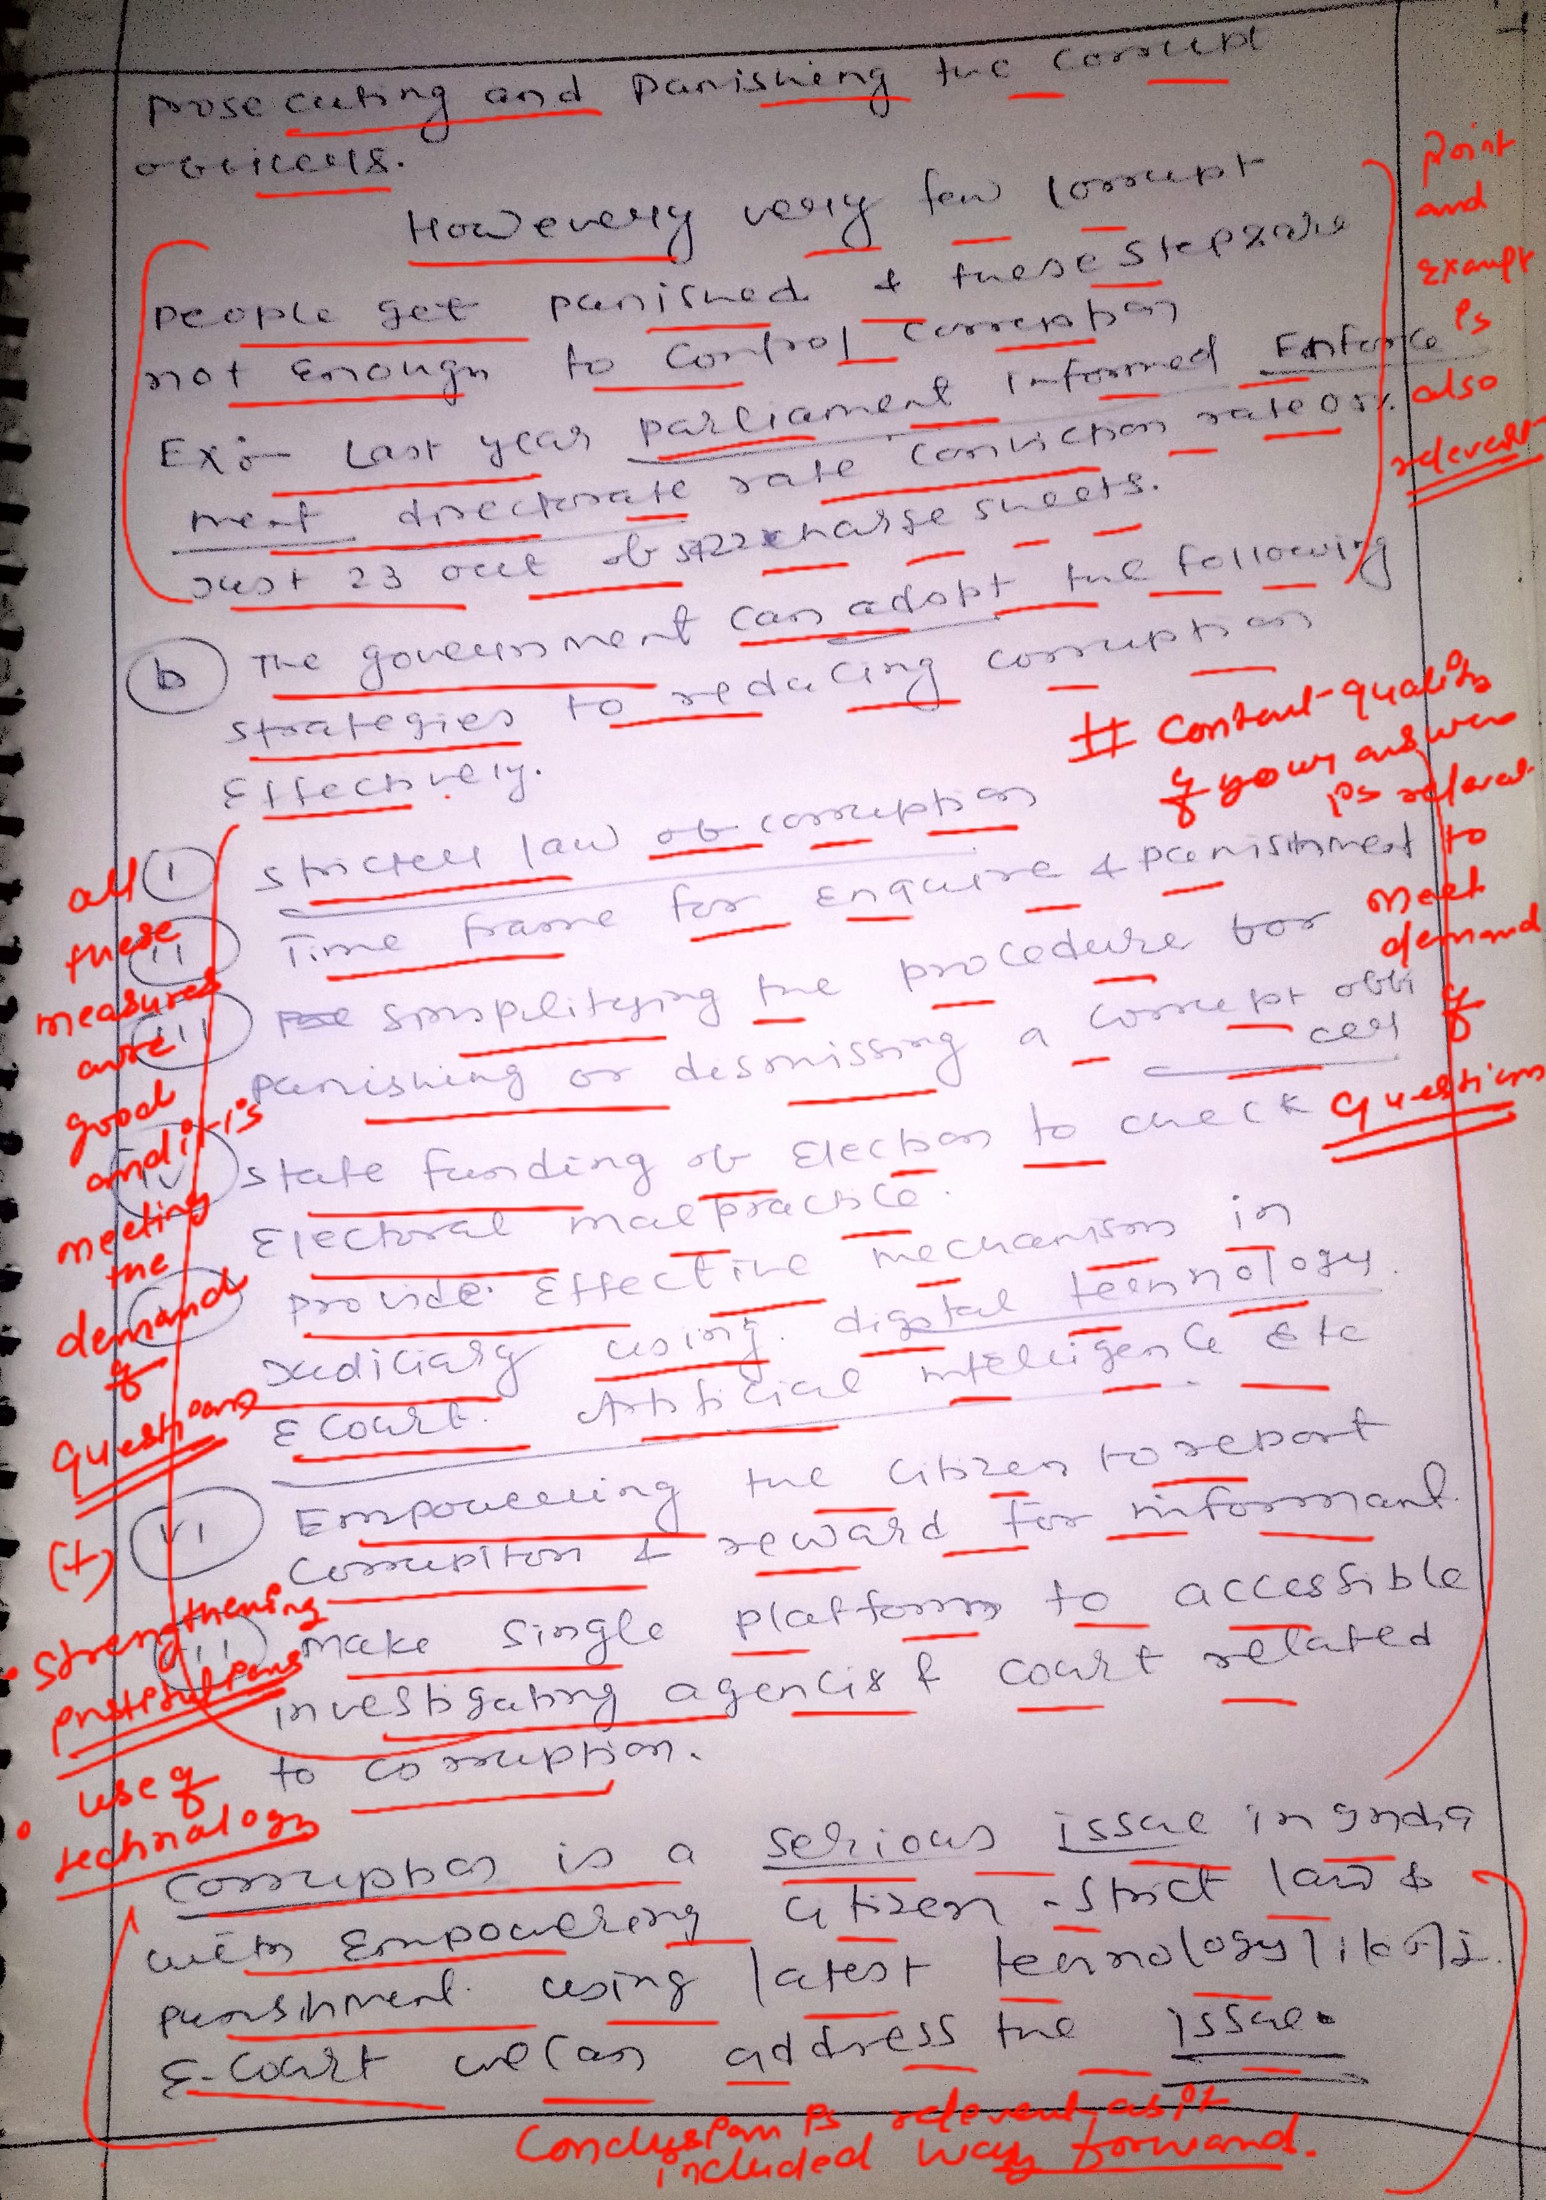 prosecuting and Panishing the corrupt
officers.
Howevery very few corrupt
people get panished & these steps are
not Enough to control corruption
Ex:- Last year parliament informed Enforce
ment directorate rate conviction rate 0.5%
Just 23 out of 5422 charge sheets.
b The government can adopt the following
strategies to reducing corruption
Effectively.
i stricter law of corruption
ii Time frame for Enquire & panishment
iii simplifying the procedure for
panishing or desmissing a corrupt offi
cer
iv state funding of Election to check
Electoral malpractice.
provide Effective mechanism in
Judiciary using digital technology.
E court. Artificial intelligence Etc
vi Empowering the citizen to report
corrupiton & reward for informant.
make single platform to accessible
investigating agencis & court related
to corruption.
corruption is a serious issue in India
with Empowering citizen - strict law &
punishment using latest technology like AI.
E-court we can address the issue.
Point
and
exampl
is
also
relevant
# Content-quality
of your answer
is relevant
to
meet
demand
of
questions
all
these
measures
are
good
and it is
meeting
the
demand
of
questions
(+)
• Strengthening
institutions
• use of
technology
Conclusion is relevent, as it
included way forward.